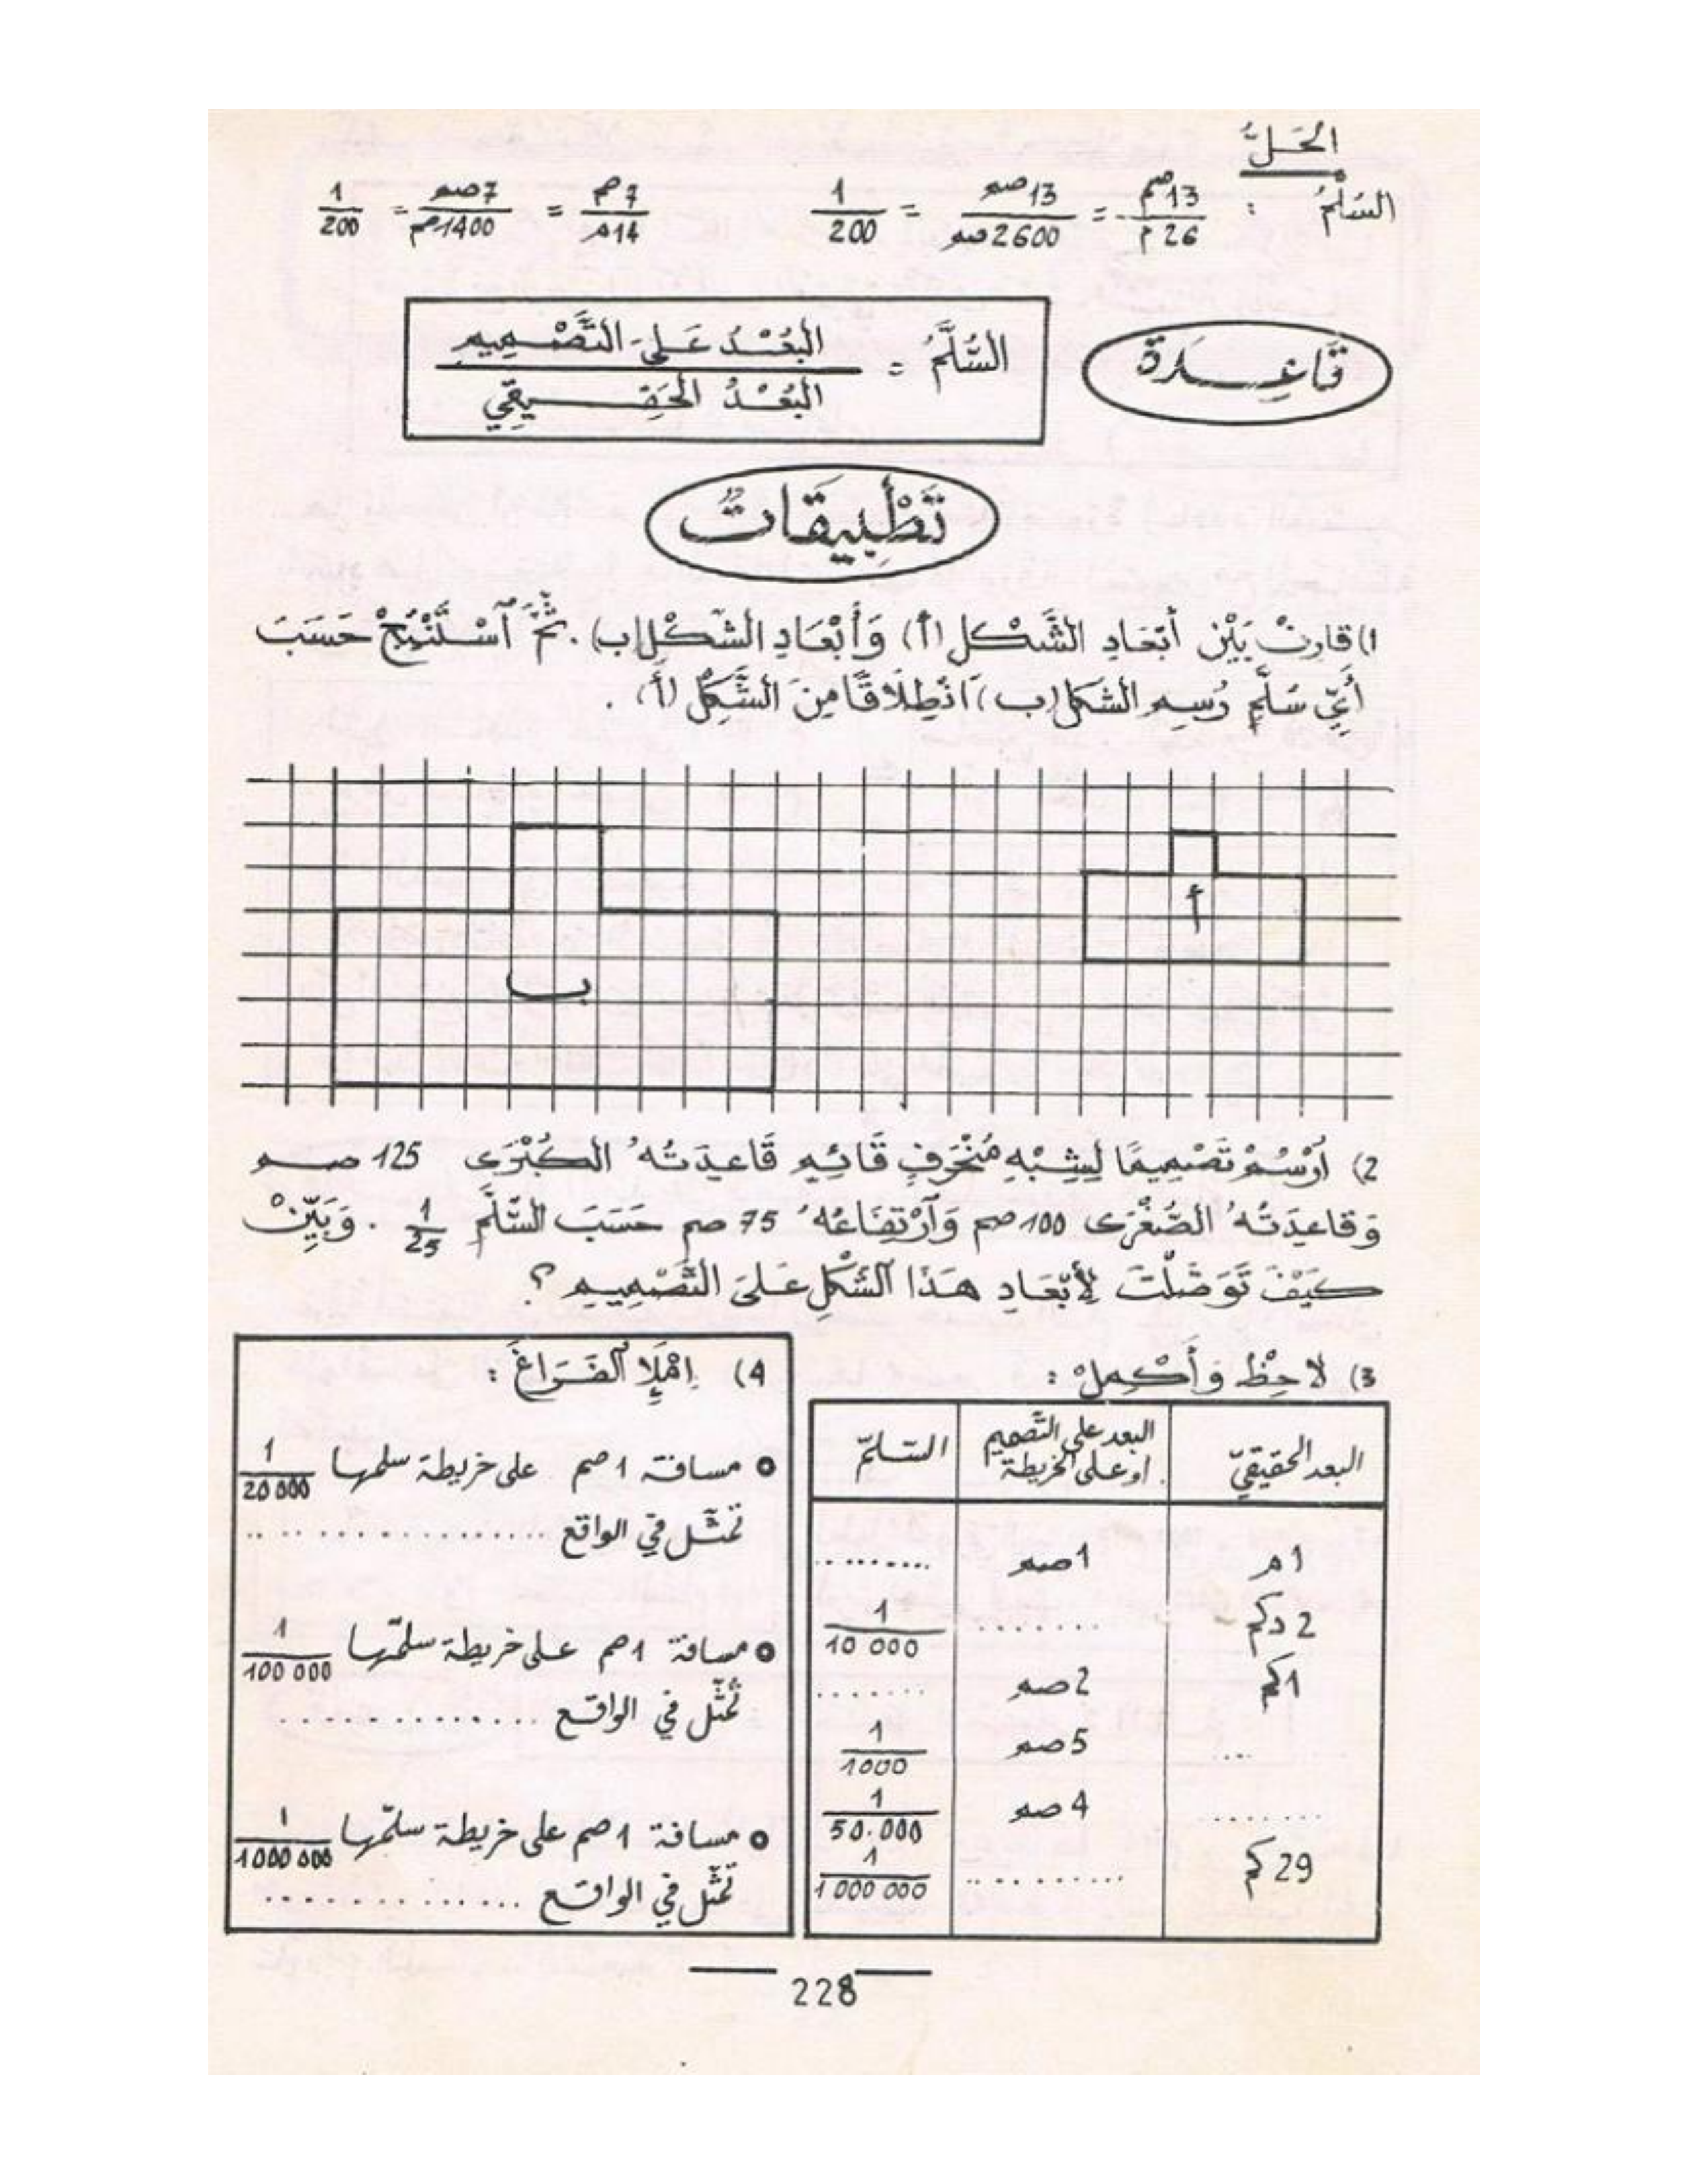 الحَلُّ
السُلَّمُ : 13صم/26م = 13صم/2600صم = 1/200 7صم/14م = 7صم/1400صم = 1/200
قَاعِدَة
السُّلَّمُ = البُعْدُ عَلَى التَّصْمِيمِ / البُعْدُ الحَقِيقِيّ
تَطْبِيقَاتٌ
1) قارِنْ بَيْن أَبْعَادِ الشَّكْل (أ) وَأَبْعَادِ الشَّكْل (ب). ثُمَّ ٱسْتَنْتِجْ حَسَبَ
أَيِّ سُلَّمٍ رُسِمَ الشَكل (ب) ٱنْطِلَاقًا مِنَ الشَّكْلِ (أ).
أ
ب
2) أُرْسُمْ تَصْمِيمًا لِشِبْهِ مُنْحَرِفٍ قَائِمٍ قَاعِدَتُهُ الكُبْرَى 125 صم
وَقاعِدَتُهُ الصُّغْرَى 100 صم وَٱرْتِفَاعُهُ 75 صم حَسَبَ السُّلَّمِ 1/25 . وَبَيِّنْ
كَيْفَ تَوَصَّلْتَ لِأَبْعَادِ هَذَا الشَّكْلِ عَلَى التَّصْمِيمِ ؟
3) لاَحِظْ وَأَكْمِلْ :
البعد الحقيقيّ البعد على التّصميم او على الخريطة السّلّم
1م 1صم .........
2 دكم ....... 1/10 000
1كم 2صم .......
.... 5صم 1/1000
........ 4صم 1/50.000
29 كم .......... 1/1 000 000
4) اِمْلَإِ الفَرَاغَ :
مسافة 1صم على خريطة سلمها 1/20 000
تمثّل في الواقع ..................
مسافة 1صم على خريطة سلّمها 1/100 000
تمثّل في الواقع ..............
مسافة 1صم على خريطة سلّمها 1/1000 000
تمثّل في الواقع ..............
228